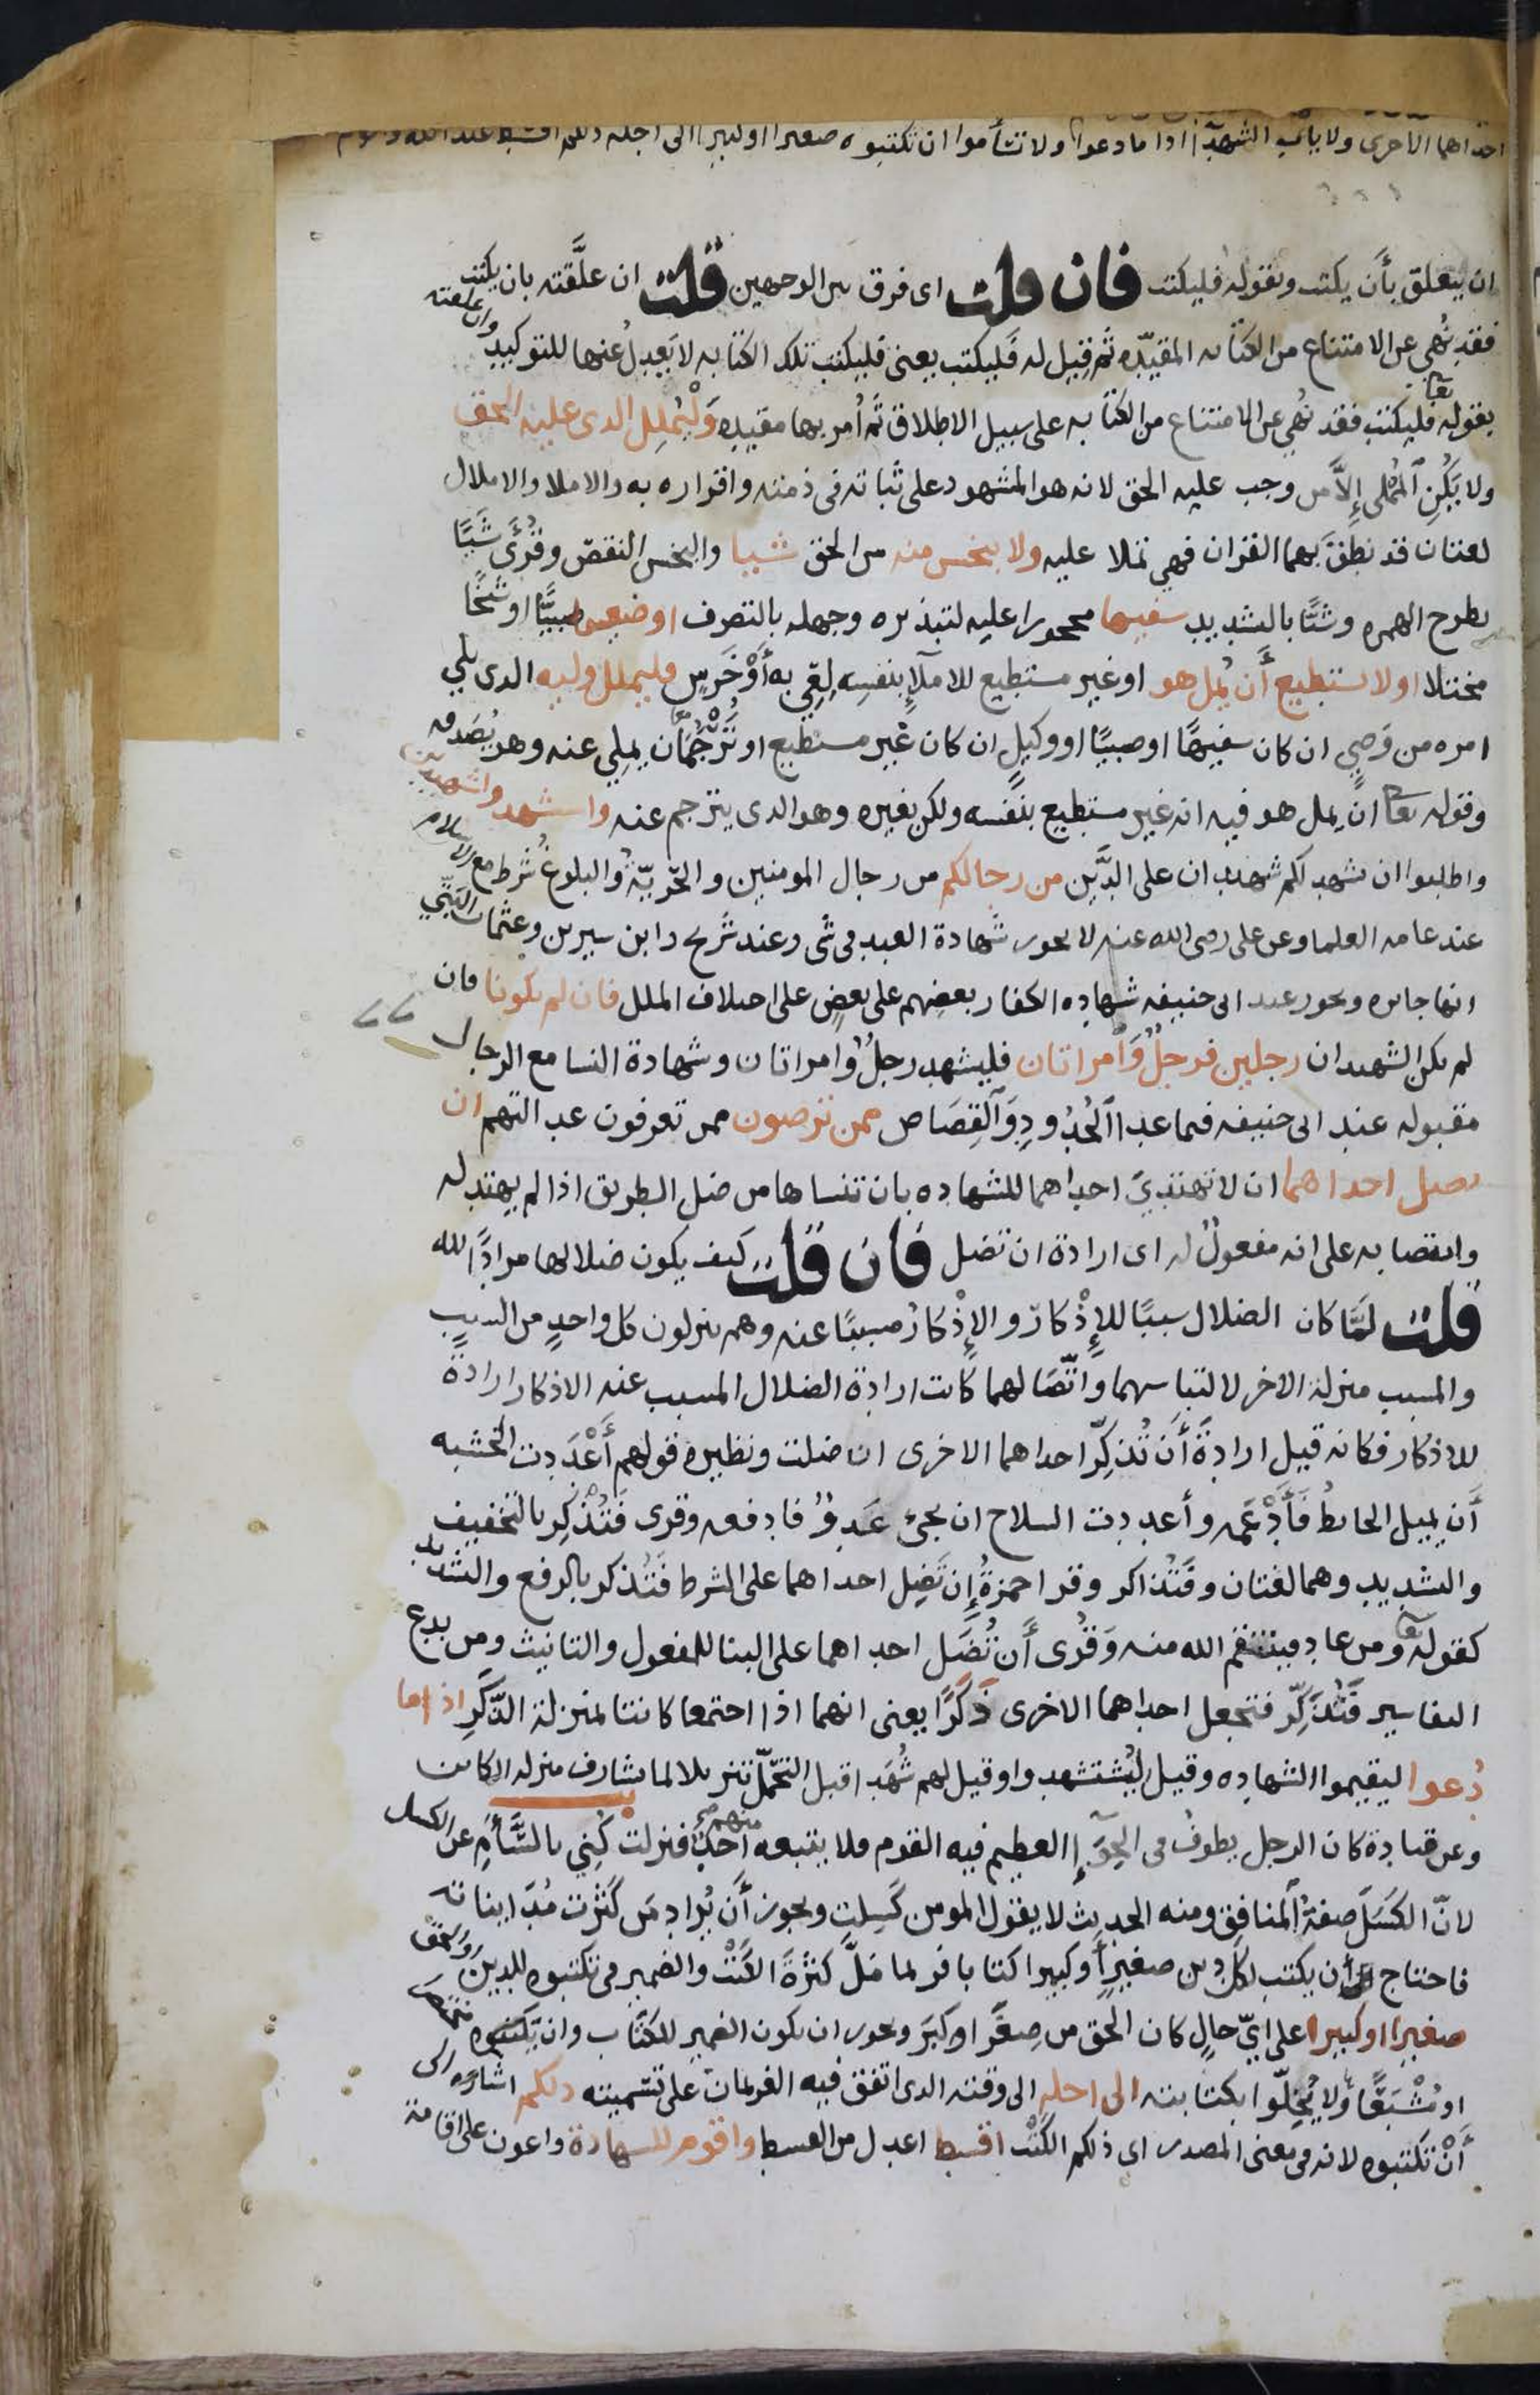 احداهما الاخرى ولا ياب الشهدآ اذا ما دعوا ولا تسأموا ان تكتبوه صغيرا او كبيرا الى اجله ذلكم اقسط عند الله واقوم
ان يتعلق بأن يكتب وبقوله فليكتب فان قلت اى فرق بين الوجهين قلت ان علَّقته بان يكتب
فقد نُهي عن الامتناع من الكتابه المقيّده ثم قيل له فَليكتب يعنى فليكتب تلك الكتابه لا يَعدِلُ عنها للتوكيد وان علقته
بقوله تعا فليكتب فقد نُهي عن الامتناع من الكتابه على سبيل الاطلاق ثم أمر بها مقيده وَلْيُملِل الدى عليه الحق
ولا يكُنِ المُمْلى إلاَّ من وجب عليه الحق لانه هو المشهود على ثباته فى ذمته واقراره به والاملا والاملال
لغتان قد نطقَ بهما القران فهي تملا عليه ولا يبخس منه من الحق شيا والبخس النقص وقُرئَ شَيًا
بطرح الهمره وشيًّا بالتشديد سفيها محجورا عليه لتبذيره وجهله بالتصرف او ضعيفا صبيًّا او شيخًا
مختلا او لا يستطيع أَن يُمل هو او غير مستطيع للاملآءِ بنفسِه لِعِيّ به أوْ خَرَسٍ فليملل وليه الدى يلي
امره من وَصِيٍ ان كان سفيهًا او صبيًا او وكيلٍ ان كان غَير مستطيع او تَرْجُمَان يملِي عنه وهو يُصَدقه
وقوله تعا ان يمل هو فيه انه غير مستطيع بنَفسه ولكن بغيره وهو الدى يترجم عنه واستشهدوا شهيدين
واطلبوا ان يشهد لكم شهيدان على الدَّين من رجالكم من رجال المومنين والحريّةُ والبلوغُ شَرط مع الاسلام
عند عامه العلما وعن على رضى الله عنه لا يجوز شهادة العبد فى شى وعند شريح وابن سيرين وعثمان البَتِّي
انها جائزه ويجوز عند ابى حنيفه شهاده الكفار بعضِهم على بعضٍ على اختلاف الملل فان لم يكونا فان
لم يكن الشهيدان رجلين فرجلٌ وَامراتان فليشهد رجلٌ وامراتان وشهادة النسا مع الرجال
مقبوله عند ابى حنيفه فيما عدا الحُدُودِ وَالقِصَاص ممن ترضون ممن تعرفون عدالتهم ان
تضل احداهما ان لا تهتدىَ احداهما للشهاده بان تنساها من ضل الطريق اذا لم يهتد له
وانتصابه على انه مفعولٌ له اى ارادة ان تضل فان قلت كيف يكون ضلالها مرادًا لله
قلت لمَّا كان الضلال سببًا للإِذْكارِ والإِذْكارُ مسببًا عنه وهم ينزلون كل واحدٍ من السببِ
والمسبب منزلة الاخر لالتباسهما واتّصَالهما كانت ارادة الضلال المسبب عنه الاذكار ارادةً
للاذكار فكانه قيل ارادةَ أن تُذكِّر احداهما الاخرى ان ضلت ونظيره قولهم أَعْدَدت الخشبه
أَن يميل الحائطُ فَأَدْعَمه وأعددت السلاح ان يجئَ عَدوٌّ فادفعه وقرى فَتُذْكِر بالتخفيف
والتشديد وهما لغتان وفَتُذاكر وقرا حمزةُ إِن تَضِل احداهما على الشرط فَتُذكر بالرفع والتشديد
كقوله تعا ومن عاد فينتقم الله منه وَقُرى أَن تُضَل احداهما على البنا للمفعول والتانيث ومن بدع
التفاسير فَتُذكِّر فتجعل احداهما الاخرى ذَكَرًا يعنى انهما اذا اجتمعا كانتا بمنزلة الذَّكَرِ اذا ما
دُعوا ليقيموا الشهاده وقيل ليُستشهدوا وقيل لهم شُهدا قبل التحمّل تنزيلا لما يشارف منزله الكائن
وعن قتادة كان الرجل يطوفُ فى الحِوَآءِ العظيم فيه القوم فلا يتبعه منهم احدٌ فنزلت كُنِي بالسَّأَمِ عن الكسل
لانّ الكَسَلَ صفةُ المنافق ومنه الحديث لا يقول المومن كَسِلت ويجوز أَن يُراد مَن كَثُرت مُدَايناته
فاحتاج الى أن يكتب لكل دين صغيرٍ أو كبير كتابا فربما مَلَّ كثرةَ الكَتْبِ والضمير فى تكتبوه للدين او الحق
صغيرا او كبيرا على ايّ حالٍ كان الحق من صِغَرٍ او كِبَرَ ويجوز ان يكون الضمير للكِتَاب وان تكتبوه مختصرا
او مُشْبَعًا ولا يُخِلّوا بكتابته الى اجله الى وقته الدى اتفق فيه الغريمان على تسميته ذلكم اشاره الى
أَنْ تكتبوه لانه فى معنى المصدر اى ذلكم الكَتْب اقسط اعدل من القسط واقوم للشهادة واعون على اقامة